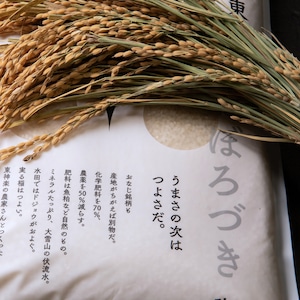 東
ほろづき
うまさの次は
つよさだ。
おなじ銘柄も
産地がちがえば別物だ。
化学肥料を70%、
農薬を50%減らす。
肥料は魚粕など自然のもの。
水田ではドジョウがおよぐ。
ミネラルたっぷり、大雪山の伏流水。
実る稲はつよい。
東神楽の農家さんと